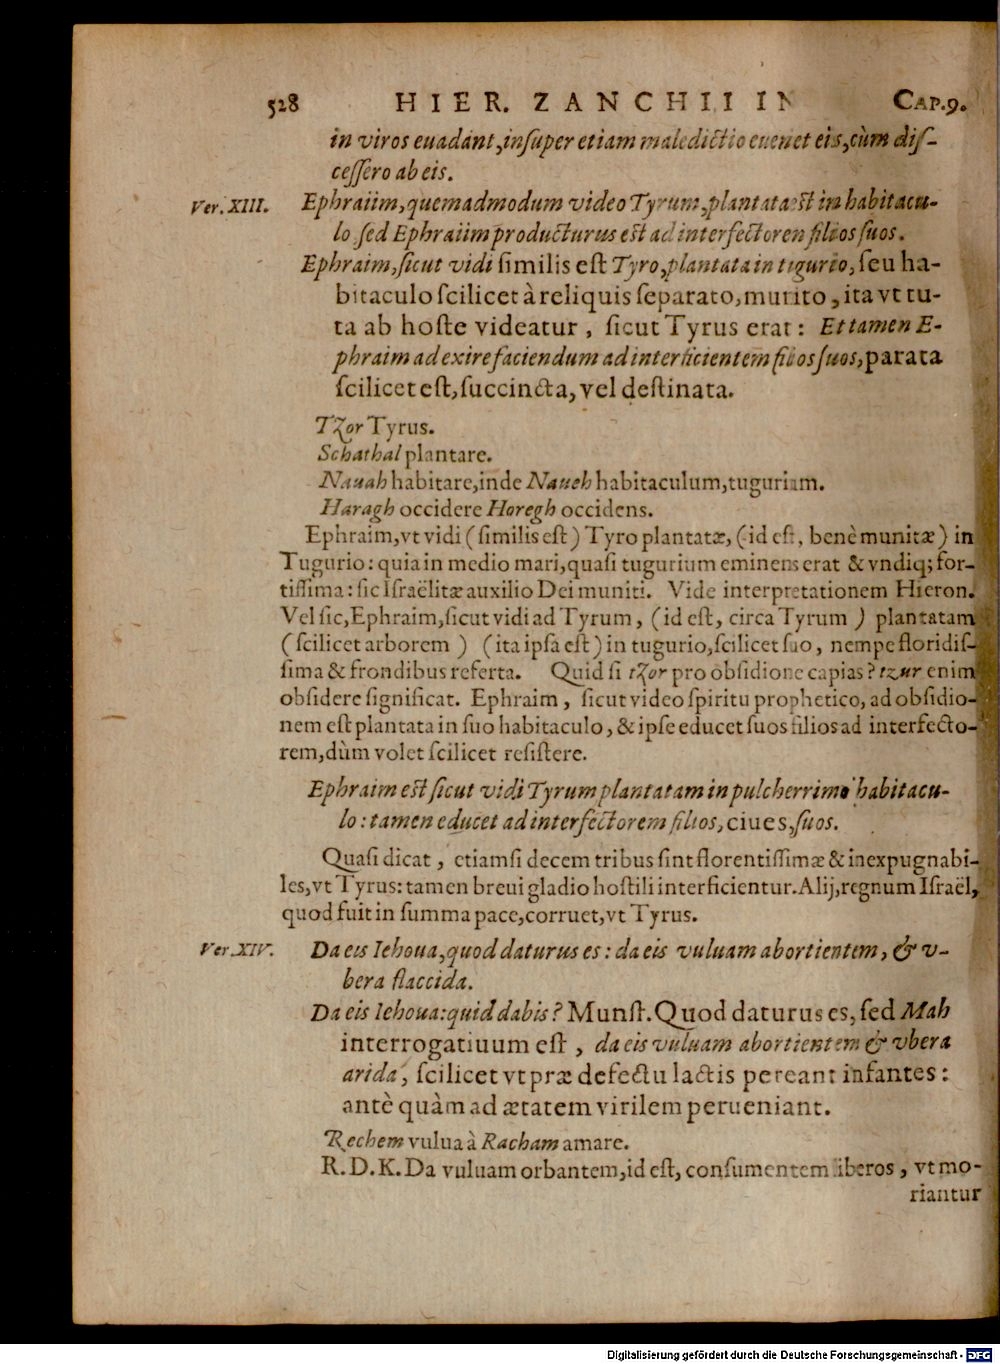 528 HIER. ZANCHII IN CAP.9.
in viros euadant, inſuper etiam maledictio eueniet eis, cùm diſ-
ceſſero ab eis.
Ver. XIII. Ephraiim, quemadmodum video Tyrum, plantata eſt in habitacu-
lo ſed Ephraiim producturus eſt ad interfectorem filios ſuos.
Ephraim, ſicut vidi ſimilis eſt Tyro, plantata in tugurio, ſeu ha-
bitaculo ſcilicet à reliquis ſeparato, munito, ita vt tu-
ta ab hoſte videatur, ſicut Tyrus erat: Et tamen E-
phraim ad exire faciendum ad interficientem filios ſuos, parata
ſcilicet eſt, ſuccincta, vel deſtinata.
Tzor Tyrus.
Schathal plantare.
Nauah habitare, inde Naueh habitaculum, tugurium.
Haragh occidere Horegh occidens.
Ephraim, vt vidi (ſimilis eſt) Tyro plantatæ, (id eſt, benè munitæ) in
Tugurio: quia in medio mari, quaſi tugurium eminens erat & vndiq; for-
tiſſima: ſic Iſraëlitæ auxilio Dei muniti. Vide interpretationem Hieron.
Vel ſic, Ephraim, ſicut vidi ad Tyrum, (id eſt, circa Tyrum) plantatam
(ſcilicet arborem) (ita ipſa eſt) in tugurio, ſcilicet ſuo, nempe floridiſ-
ſima & frondibus referta. Quid ſi tzor pro obſidione capias? tzur enim
obſidere ſignificat. Ephraim, ſicut video ſpiritu prophetico, ad obſidio-
nem eſt plantata in ſuo habitaculo, & ipſe educet ſuos filios ad interfecto-
rem, dùm volet ſcilicet reſiſtere.
Ephraim eſt ſicut vidi Tyrum plantatam in pulcherrimo habitacu-
lo: tamen educet ad interfectorem filios, ciues, ſuos.
Quaſi dicat, etiamſi decem tribus ſint florentiſſimæ & inexpugnabi-
les, vt Tyrus: tamen breui gladio hoſtili interficientur. Alij, regnum Iſraël,
quod fuit in ſumma pace, corruet, vt Tyrus.
Ver. XIV. Da eis Iehoua, quod daturus es: da eis vuluam abortientem, & v-
bera flaccida.
Da eis Iehoua: quid dabis? Munſt. Quod daturus es, ſed Mah
interrogatiuum eſt, da eis vuluam abortientem & vbera
arida, ſcilicet vt præ defectu lactis pereant infantes:
antè quàm ad ætatem virilem perueniant.
Rechem vulua à Racham amare.
R. D. K. Da vuluam orbantem, id eſt, conſumentem liberos, vt mo-
riantur
Digitalisierung gefördert durch die Deutsche Forschungsgemeinschaft - DFG